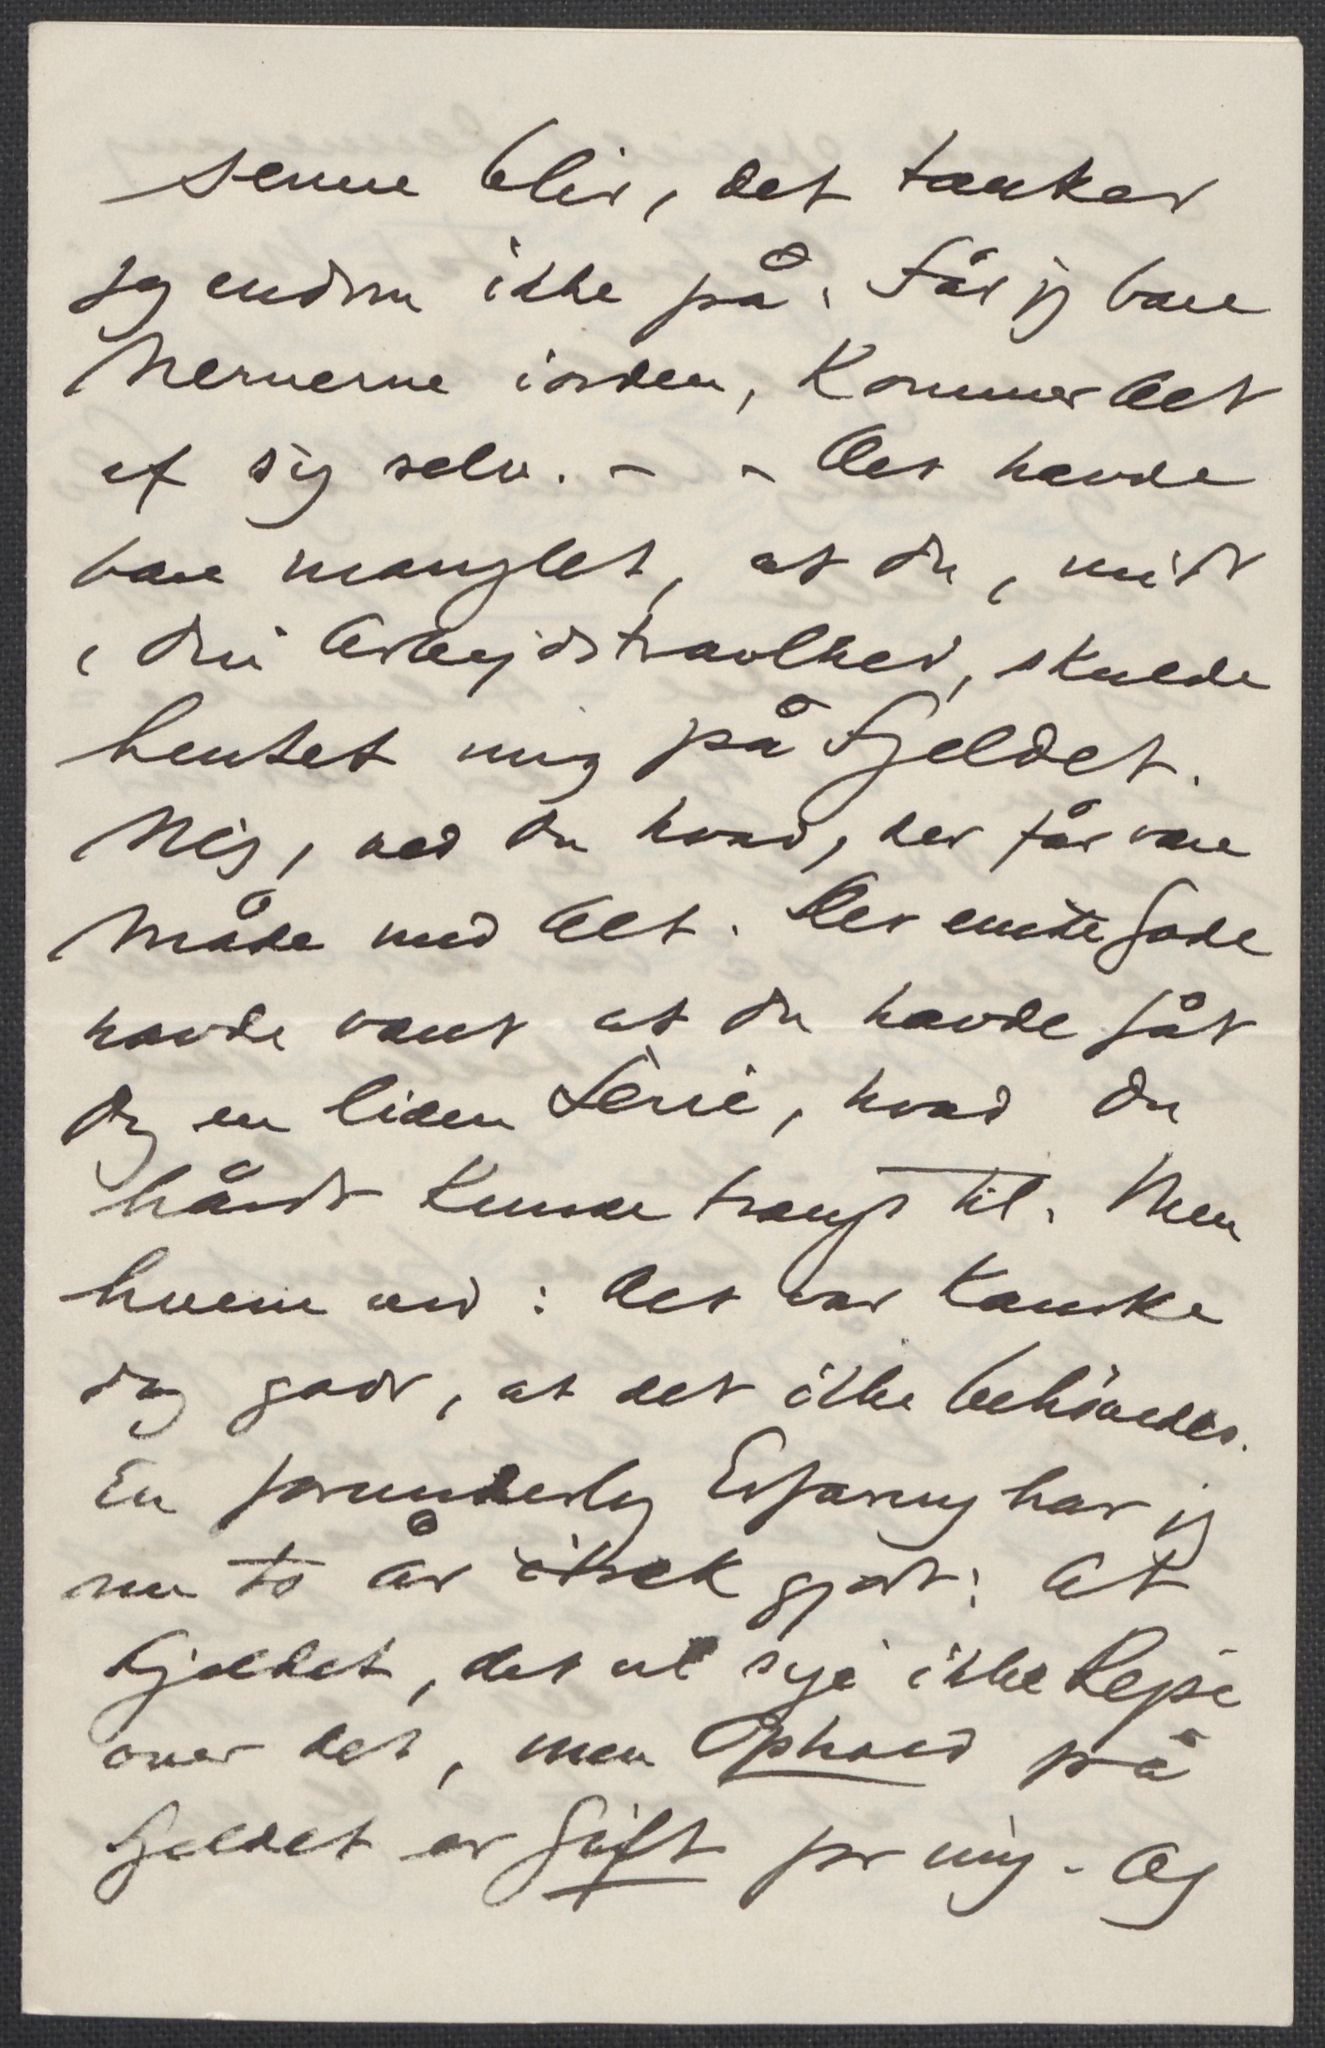 senere blir, det tænker
jeg endnu ikke på. Får jeg bare
Nerverne iorden, kommer Alt
af sig selv. – – Det havde
bare manglet, at du, midt
i din Arbejdstravlhed, skulde
hentet mig på Fjeldet.
Nej, ved du hvad, der får være
Måde med Alt. Det eneste Gode
havde været at du havde fåt
dig en liden Ferie, hvad du
hårdt kunde trængt til. Men
hvem ved: Det var kanske
dog godt, at det ikke behövedes.
En forunderlig Erfaring har jeg
nu to År itræk gjort: At
Fjeldet, det vil sige ikke Rejse
over det, men Ophold på
Fjeldet er Gift for mig. Og